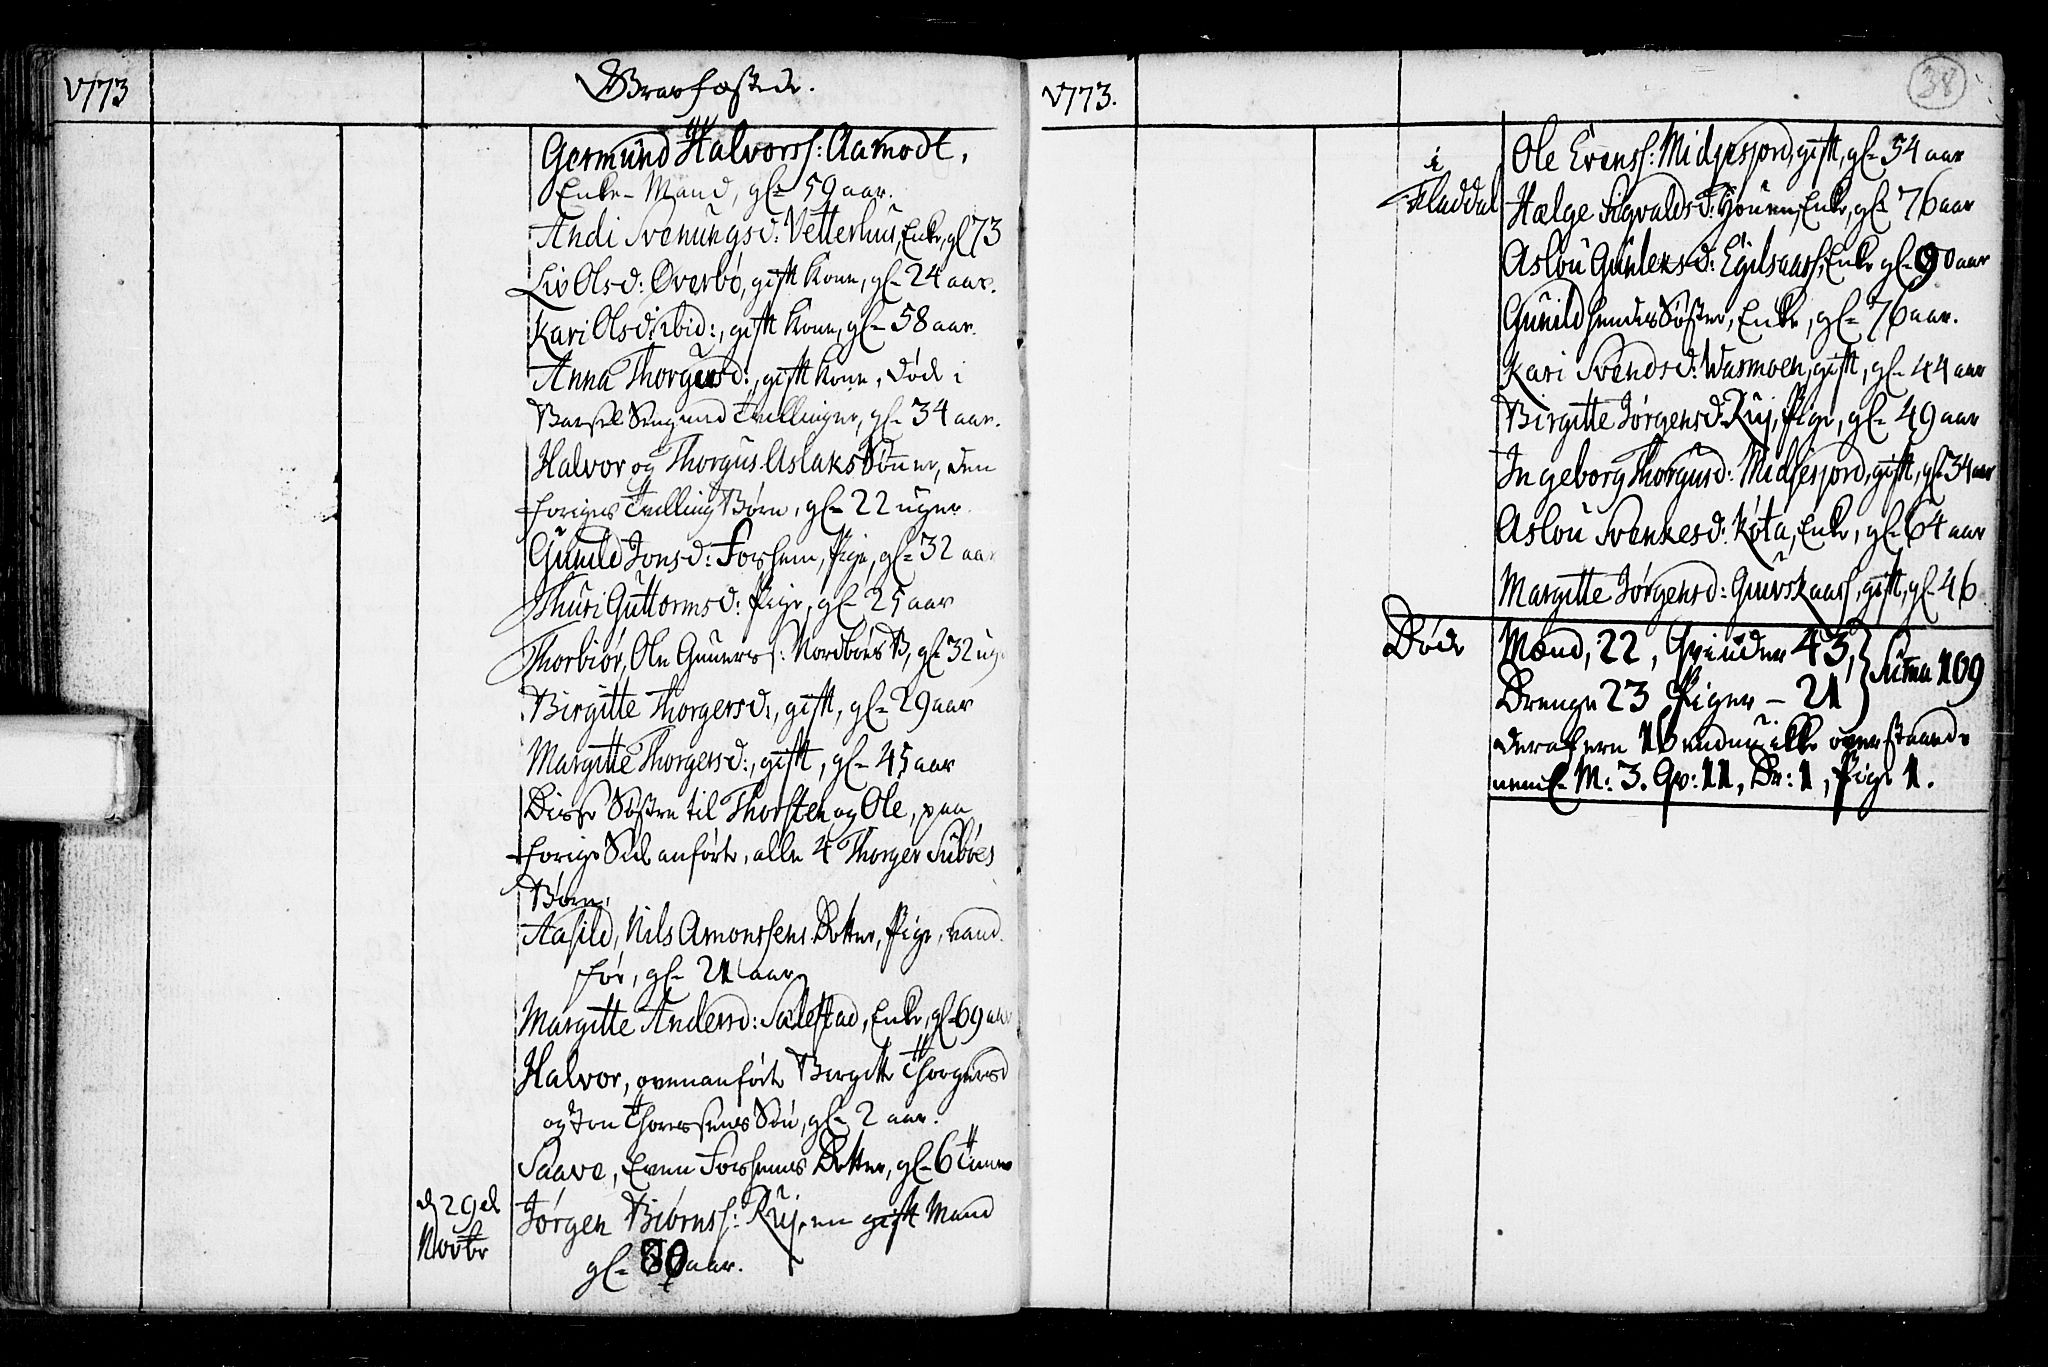 1773
Gravfæstede.
Germund Halvorss: Aamodt,
Enke-Mand, gl- 59 aar.
Andi Svenungsd: Vetterhus, Enke, gl 73
Liv Olsd: Øverbø, gift Kone, gl- 24 aar.
Kari Olsd: ibid:, gift Kone, gl- 58 aar.
Anna Thorgusd:, gift Kone, død i
Barsel Seng med Tvillinger, gl- 34 aar.
Halvor og Thorgus Aslaks Sønner, den
foriges Tvilling Børn, gl- 22 uger.
Gunild Jonsd: Forshem, Pige, gl- 32 aar
Thuri Guttormsd: Pige, gl- 25 aar
Thorbiør, Ole Guners: Nordbøes B, gl- 32 ug
Birgitte Thorgersd:, gift, gl- 29 aar
Margitte Thorgersd:, gift, gl- 45 aar
Disse Søstre til Thorsten og Ole, paa
forige Side anførte, alle 4 Thorger Subøes
Børn.
Aasild, Nils Amonssens Dotter, Pige, vand-
før, gl- 21 aar
Margitte Andersd: Salestad, Enke, gl- 69 aar
Halvor, ovenanførte Birgitte Thorgersd
og Jon Thoressens Søn, gl- 2 aar.
Saave, Even Forshems Dotter, gl- 6 Timer
d 29de
Novbr
Jørgen Biørnss: Ruj, en gift Mand
gl- 80 aar.
1773.
38
i
Fladdal
Ole Evenss: Midjesjord, gift, gl- 54 aar
Hælge Sigvaldsd: Houen, Enke, gl- 76 aar
Aslou Gunleksd: Egilsaas, Enke gl- 90 aar
Gunild hendes Søster, Enke, gl- 76 aar.
Kari Svendsd: Warmoen, gift, gl- 44 aar
Birgitte Jørgensd: Ruj, Pige, gl- 49 aar
Ingeborg Thorgusd: Midjesjord, gift, gl- 34 aar
Aslou Svenkesd: Kota, Enke, gl- 64 aar
Margitte Jørgensd: Guvskaas, gift, gl- 46
Døde
Mænd, 22, Qvinder 43,
Drenge 23 Piger - 21
Suma 109
deraf ere 16 endnu ikke overstaaende
neml. M: 3. Qv: 11, Dr: 1, Pige 1.